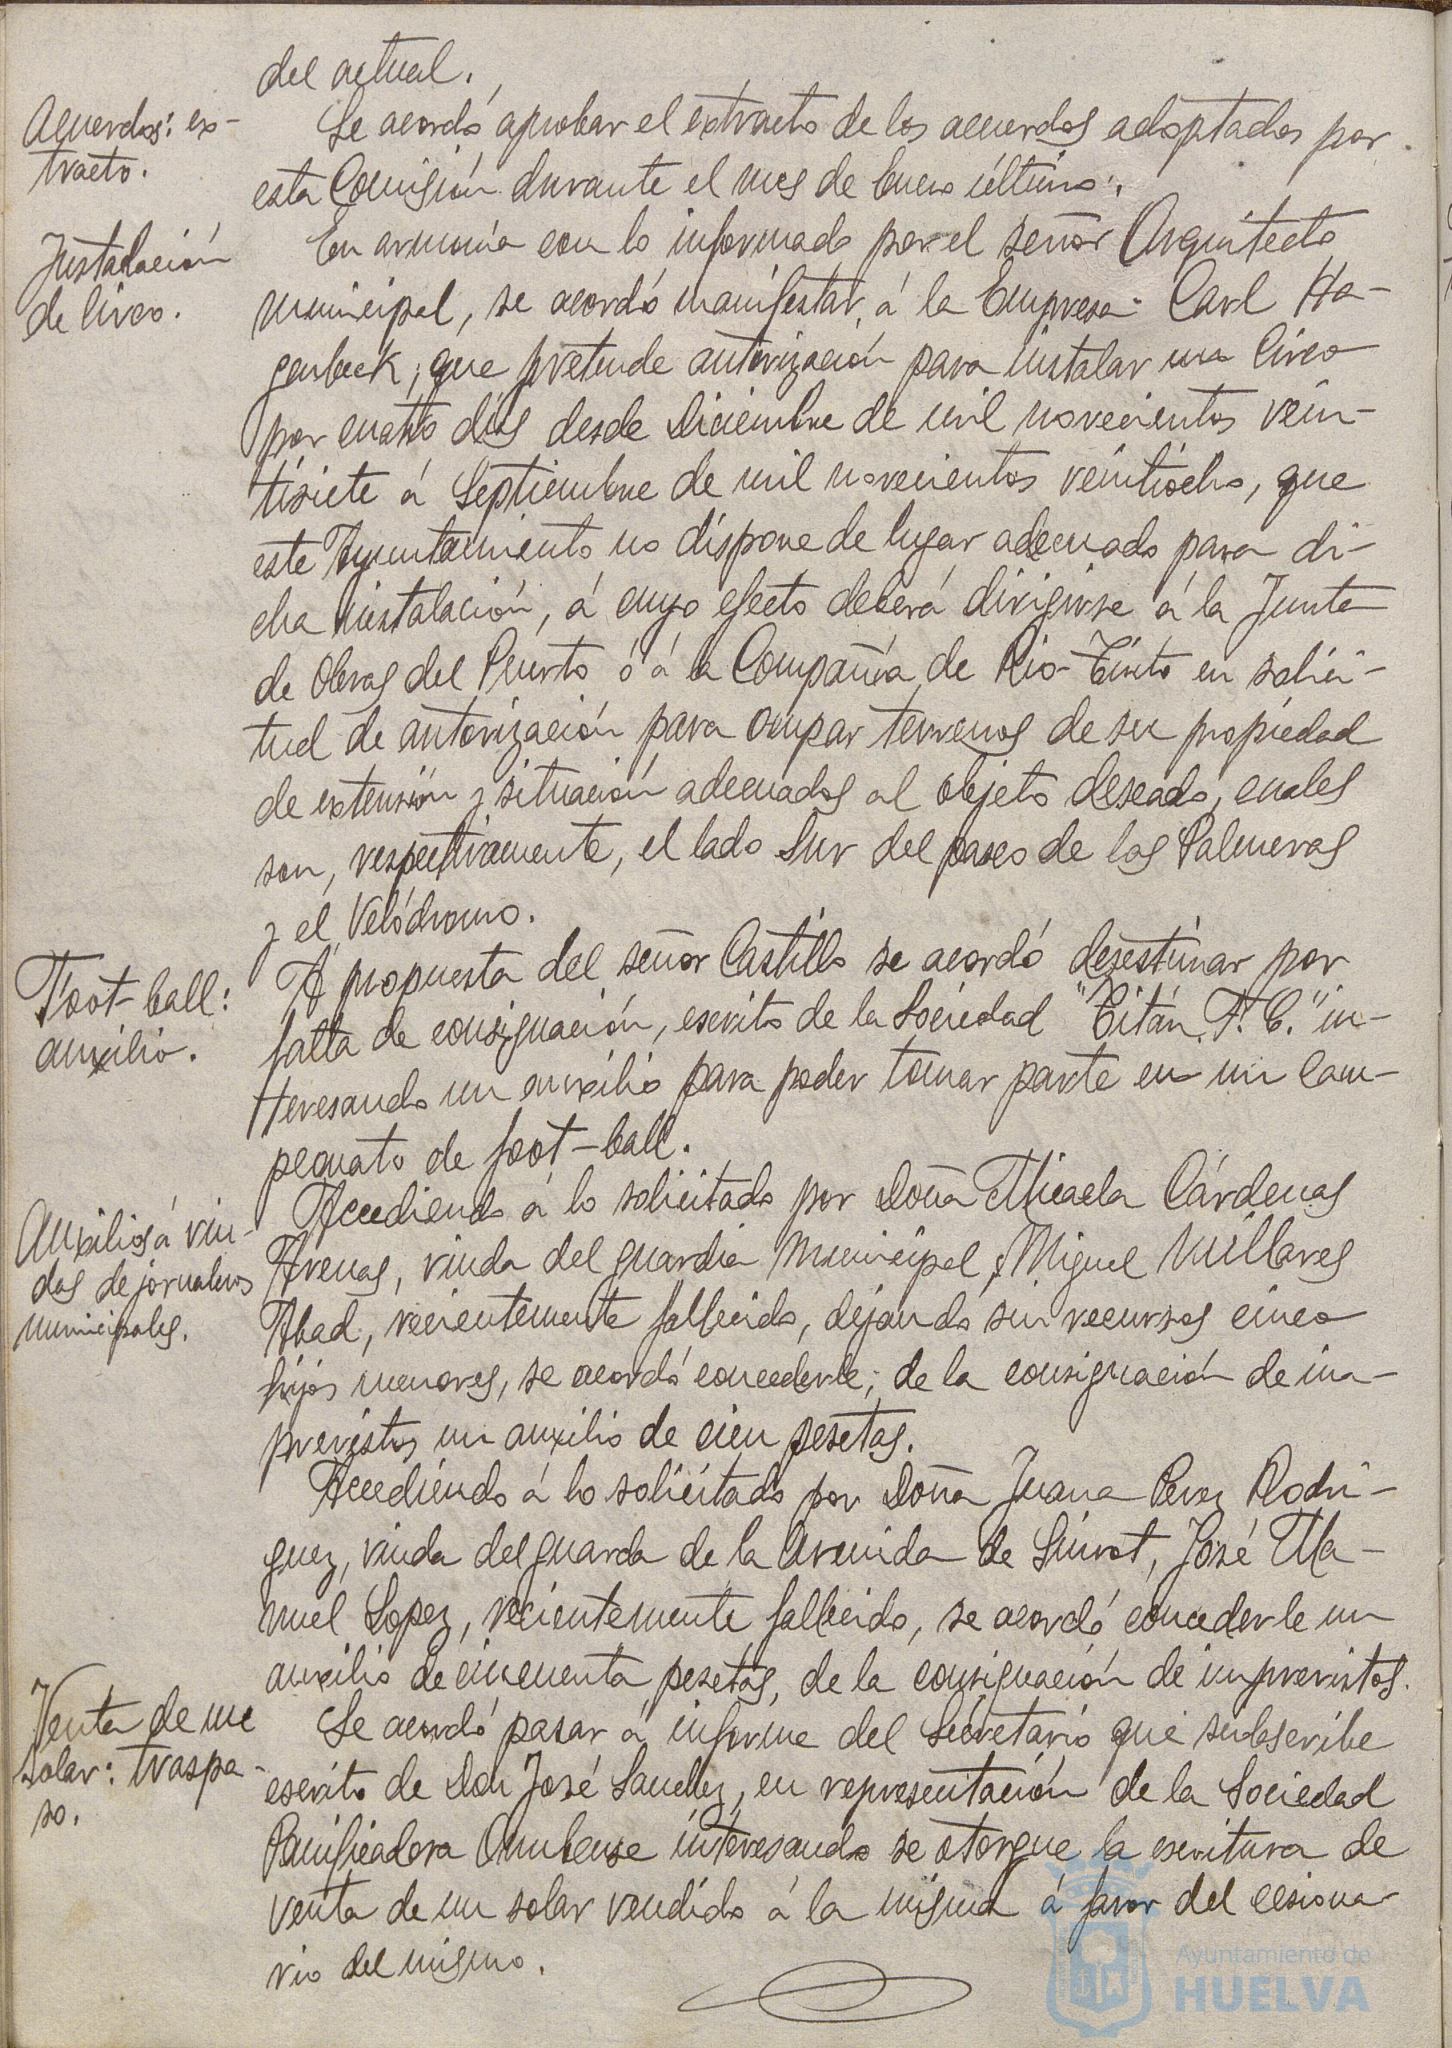 del actual.
Acuerdos: ex-
tracto.
Se acordó aprobar el extracto de los acuerdos adoptados por
esta Comisión durante el mes de Enero último.
Instalación
de Circo.
En armonía con lo informado por el señor Arquitecto
municipal, se acordó manifestar á la Empresa Carl Ha-
genbeck, que pretende autorización para instalar un Circo
por cuatro días desde Diciembre de mil novecientos vein-
tisiete á Septiembre de mil novecientos veintiocho, que
este Ayuntamiento no dispone de lugar adecuado para di-
cha instalación, á cuyo efecto deberá dirigirse á la Junta
de Obras del Puerto ó á la Compañía de Rio-Tinto en solici-
tud de autorización para ocupar terrenos de su propiedad
de extensión y situación adecuados al objeto deseado, cuales
son, respectivamente, el lado Sur del paseo de las Palmeras
y el Velódromo.
Foot-ball:
auxilio.
A propuesta del señor Castillo se acordó desestimar por
falta de consignación, escrito de la Sociedad "Titán F. C." in-
teresando un auxilio para poder tomar parte en un Cam-
peonato de foot-ball.
Auxilios á viu-
das de jornaleros
municipales.
Accediendo á lo solicitado por Doña Micaela Cárdenas
Arenas, viuda del guardia municipal, Miguel Millares
Abad, recientemente fallecido, dejando sin recursos cinco
hijos menores, se acordó concederle, de la consignación de im-
previstos un auxilio de cien pesetas.
Accediendo á lo solicitado por Doña Juana Perez Rodri-
guez, viuda del guarda de la Avenida de Siurot, José Ma-
nuel Lopez, recientemente fallecido, se acordó concederle un
auxilio de cincuenta pesetas, de la consignación de imprevistos.
Venta de un
solar: traspa-
so.
Se acordó pasar á informe del Secretario que subscribe
escrito de Don José Sanchez, en representación de la Sociedad
Panificadora Onubense interesando se otorgue la escritura de
venta de un solar vendido á la misma á favor del cesiona
rio del mismo.
Ayuntamiento de
HUELVA